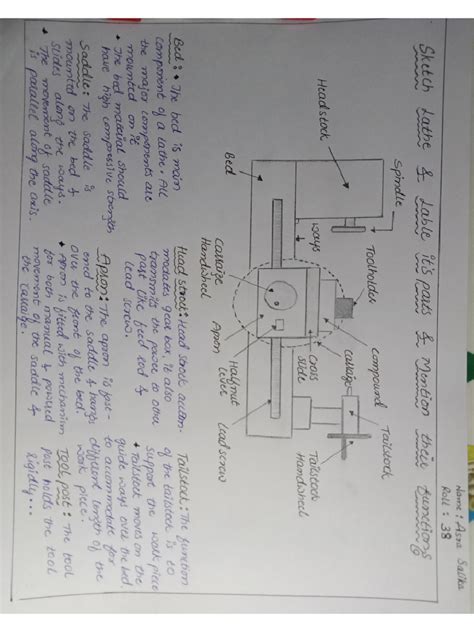 Name: Asra Salika
Roll: 38
Sketch Lathe & Lable it's parts & Mention their functions
Headstock
Spindle
ways
Toolholder
Compound
Carriage
Cross
Slide
Tailstock
Tailstock
Handwheel
Bed
Carriage
Handwheel
Apron
Halfnut
lever
Lead screw
Bed: • The bed is main
component of a lathe. All
the major components are
mounted on it.
• The bed material should
have high compressive strength
Saddle: The saddle is
mounted on the bed &
slides along the ways.
• The movement of saddle
is parallel along the axis.
Head stock: Head stock accom-
modates gear box. It also
transmits the power to other
part like feed rod &
lead screw.
Apron: The apron is fast-
ened to the saddle & hangs
over the front of the bed.
• Apron is fitted with mechanism
for both manual & powered
movement of the saddle &
the carriage.
Tailstock: The function
of the tailstock is to
support the work piece
• Tailstock moves on the
guide ways over the bed
to accommodate for
different length of the
work piece.
Tool post: The tool
post holds the tool
rigidly...